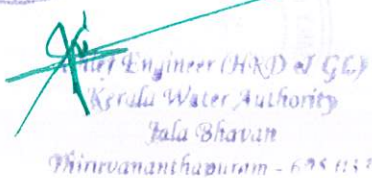 Chief Engineer (HRD & GL)
Kerala Water Authority
Jala Bhavan
Thiruvananthapuram - 695 033